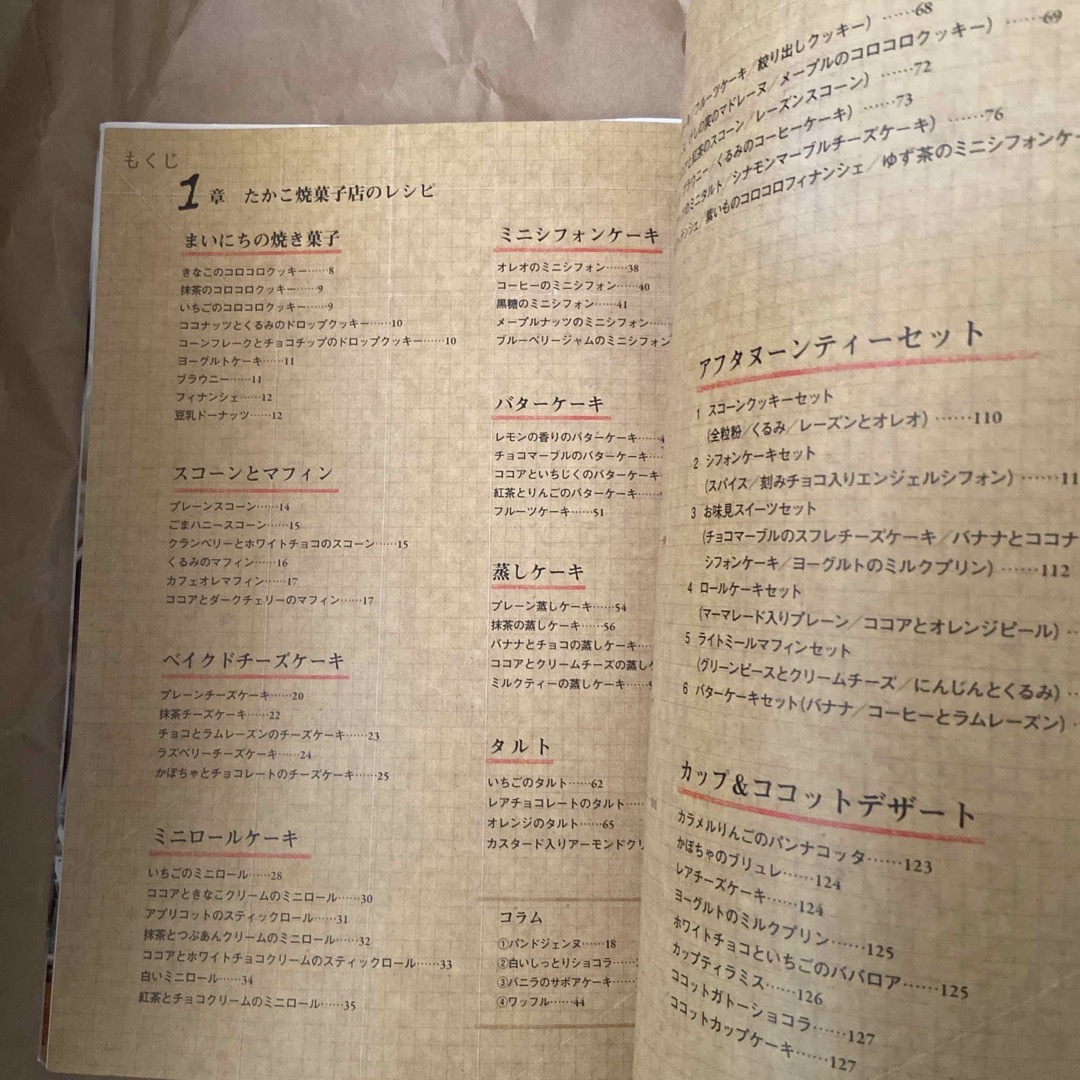 もくじ
1章 たかこ焼菓子店のレシピ
まいにちの焼き菓子
きなこのコロコロクッキー……8
抹茶のコロコロクッキー……9
いちごのコロコロクッキー……9
ココナッツとくるみのドロップクッキー……10
コーンフレークとチョコチップのドロップクッキー……10
ヨーグルトケーキ……11
ブラウニー……11
フィナンシェ……12
豆乳ドーナッツ……12
スコーンとマフィン
プレーンスコーン……14
ごまハニースコーン……15
クランベリーとホワイトチョコのスコーン……15
くるみのマフィン……16
カフェオレマフィン……17
ココアとダークチェリーのマフィン……17
ベイクドチーズケーキ
プレーンチーズケーキ……20
抹茶チーズケーキ……22
チョコとラムレーズンのチーズケーキ……23
ラズベリーチーズケーキ……24
かぼちゃとチョコレートのチーズケーキ……25
ミニロールケーキ
いちごのミニロール……28
ココアときなこクリームのミニロール……30
アプリコットのスティックロール……31
抹茶とつぶあんクリームのミニロール……32
ココアとホワイトチョコクリームのスティックロール……33
白いミニロール……34
紅茶とチョコクリームのミニロール……35
ミニシフォンケーキ
オレオのミニシフォン……38
コーヒーのミニシフォン……40
黒糖のミニシフォン……41
メープルナッツのミニシフォン……
ブルーベリージャムのミニシフォン
バターケーキ
レモンの香りのバターケーキ……4
チョコマーブルのバターケーキ……
ココアといちじくのバターケーキ…
紅茶とりんごのバターケーキ……
フルーツケーキ……51
蒸しケーキ
プレーン蒸しケーキ……54
抹茶の蒸しケーキ……56
バナナとチョコの蒸しケーキ……
ココアとクリームチーズの蒸し
ミルクティーの蒸しケーキ……
タルト
いちごのタルト……62
レアチョコレートのタルト……
オレンジのタルト……65
カスタード入りアーモンドクリ
コラム
①パンドジェンヌ……18
②白いしっとりショコラ……
③バニラのサボアケーキ……
④ワッフル……44
フルーツケーキ／絞り出しクッキー）……68
の実のマドレーヌ／メープルのコロコロクッキー）……69
と紅茶のスコーン／レーズンスコーン）……72
ブラウニー／くるみのコーヒーケーキ）……73
のミニタルト／シナモンマーブルチーズケーキ）……76
ンシェ／紫いものコロコロフィナンシェ／ゆず茶のミニシフォンケー
アフタヌーンティーセット
1 スコーンクッキーセット
（全粒粉／くるみ／レーズンとオレオ）……110
2 シフォンケーキセット
（スパイス／刻みチョコ入りエンジェルシフォン）……11
3 お味見スイーツセット
（チョコマーブルのスフレチーズケーキ／バナナとココナ
シフォンケーキ／ヨーグルトのミルクプリン）……112
4 ロールケーキセット
（マーマレード入りプレーン／ココアとオレンジピール）…
5 ライトミールマフィンセット
（グリーンピースとクリームチーズ／にんじんとくるみ）…
6 バターケーキセット（バナナ／コーヒーとラムレーズン）…
カップ＆ココットデザート
カラメルりんごのパンナコッタ……123
かぼちゃのブリュレ……124
レアチーズケーキ……124
ヨーグルトのミルクプリン……125
ホワイトチョコといちごのババロア……125
カップティラミス……126
ココットガトーショコラ……127
ココットカップケーキ……127